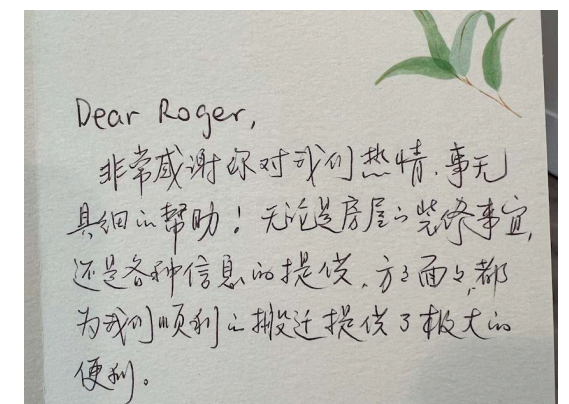 Dear Roger,
非常感谢你对我们热情、事无
具细的帮助！无论是房屋的装修事宜，
还是各种信息的提供，方方面面，都
为我们顺利的搬迁提供了极大的
便利。